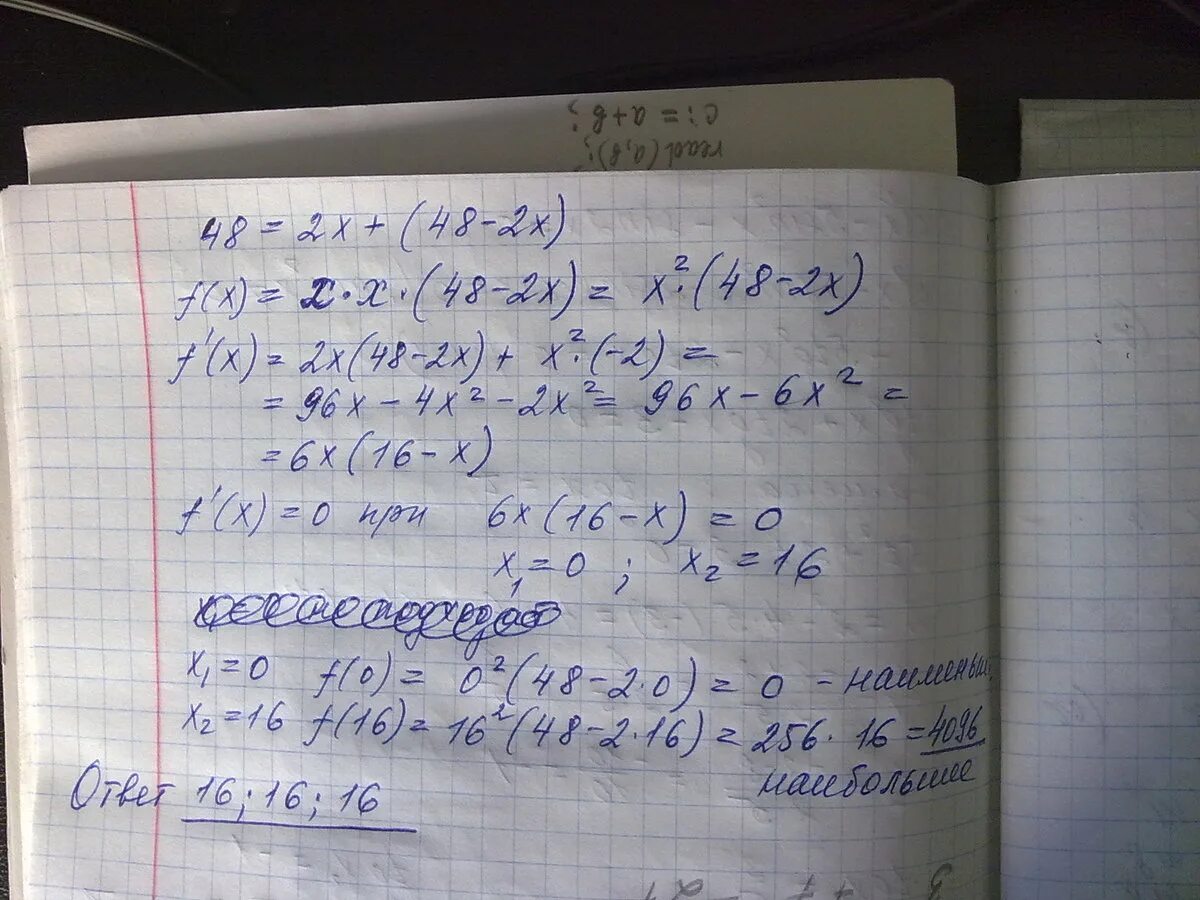 c:=a+b;
read(a,b);
48 = 2x + (48-2x)
f(x) = x·x·(48-2x) = x²·(48-2x)
f'(x) = 2x(48-2x) + x²·(-2) =
= 96x - 4x² - 2x² = 96x - 6x² =
= 6x(16-x)
f'(x) = 0 при 6x(16-x) = 0
x₁ = 0 ; x₂ = 16
x₁ = 0 f(0) = 0²(48-2·0) = 0 - наименьш.
x₂ = 16 f(16) = 16²(48-2·16) = 256·16 = 4096
наибольшее
Ответ 16; 16; 16